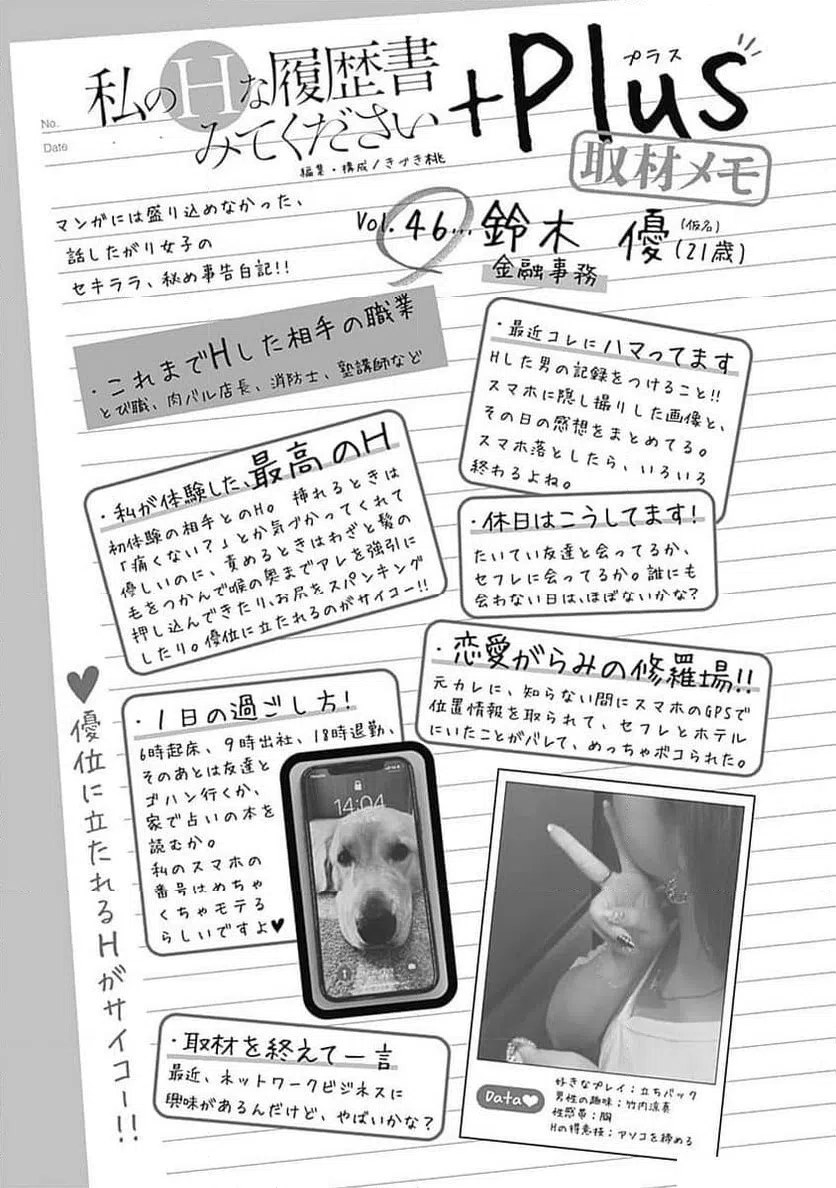 No.
Date
私のHな履歴書
みてください
+Plus
プラス
編集・構成/きづき桃
取材メモ
マンガには盛り込めなかった、
話したがり女子の
セキララ、秘め事告白記!!
Vol.46... 鈴木 優 (仮名)
(21歳)
金融事務
・これまでHした相手の職業
とび職、肉バル店長、消防士、塾講師など
・最近コレにハマってます
Hした男の記録をつけること!!
スマホに隠し撮りした画像と、
その日の感想をまとめてる。
スマホ落としたら、いろいろ
終わるよね。
・私が体験した、最高のH
初体験の相手とのH。挿れるときは
「痛くない?」とか気づかってくれて
優しいのに、責めるときはわざと髪の
毛をつかんで喉の奥までアレを強引に
押し込んできたり、お尻をスパンキング
したり。優位に立たれるのがサイコー!!
・休日はこうしてます!
たいてい友達と会ってるか、
セフレに会ってるか。誰にも
会わない日は、ほぼないかな?
・恋愛がらみの修羅場!!
元カレに、知らない間にスマホのGPSで
位置情報を取られて、セフレとホテル
にいたことがバレて、めっちゃボコられた。
♥優位に立たれるHがサイコー!!
・1日の過ごし方!
6時起床、9時出社、18時退勤、
そのあとは友達と
ゴハン行くか、
家で占いの本を
読むか。
私のスマホの
番号はめちゃ
くちゃモテる
らしいですよ♥
14:04
・取材を終えて一言
最近、ネットワークビジネスに
興味があるんだけど、やばいかな?
Data♥
好きなプレイ:立ちバック
男性の趣味:竹内涼真
性感帯:胸
Hの得意技:アソコを締める